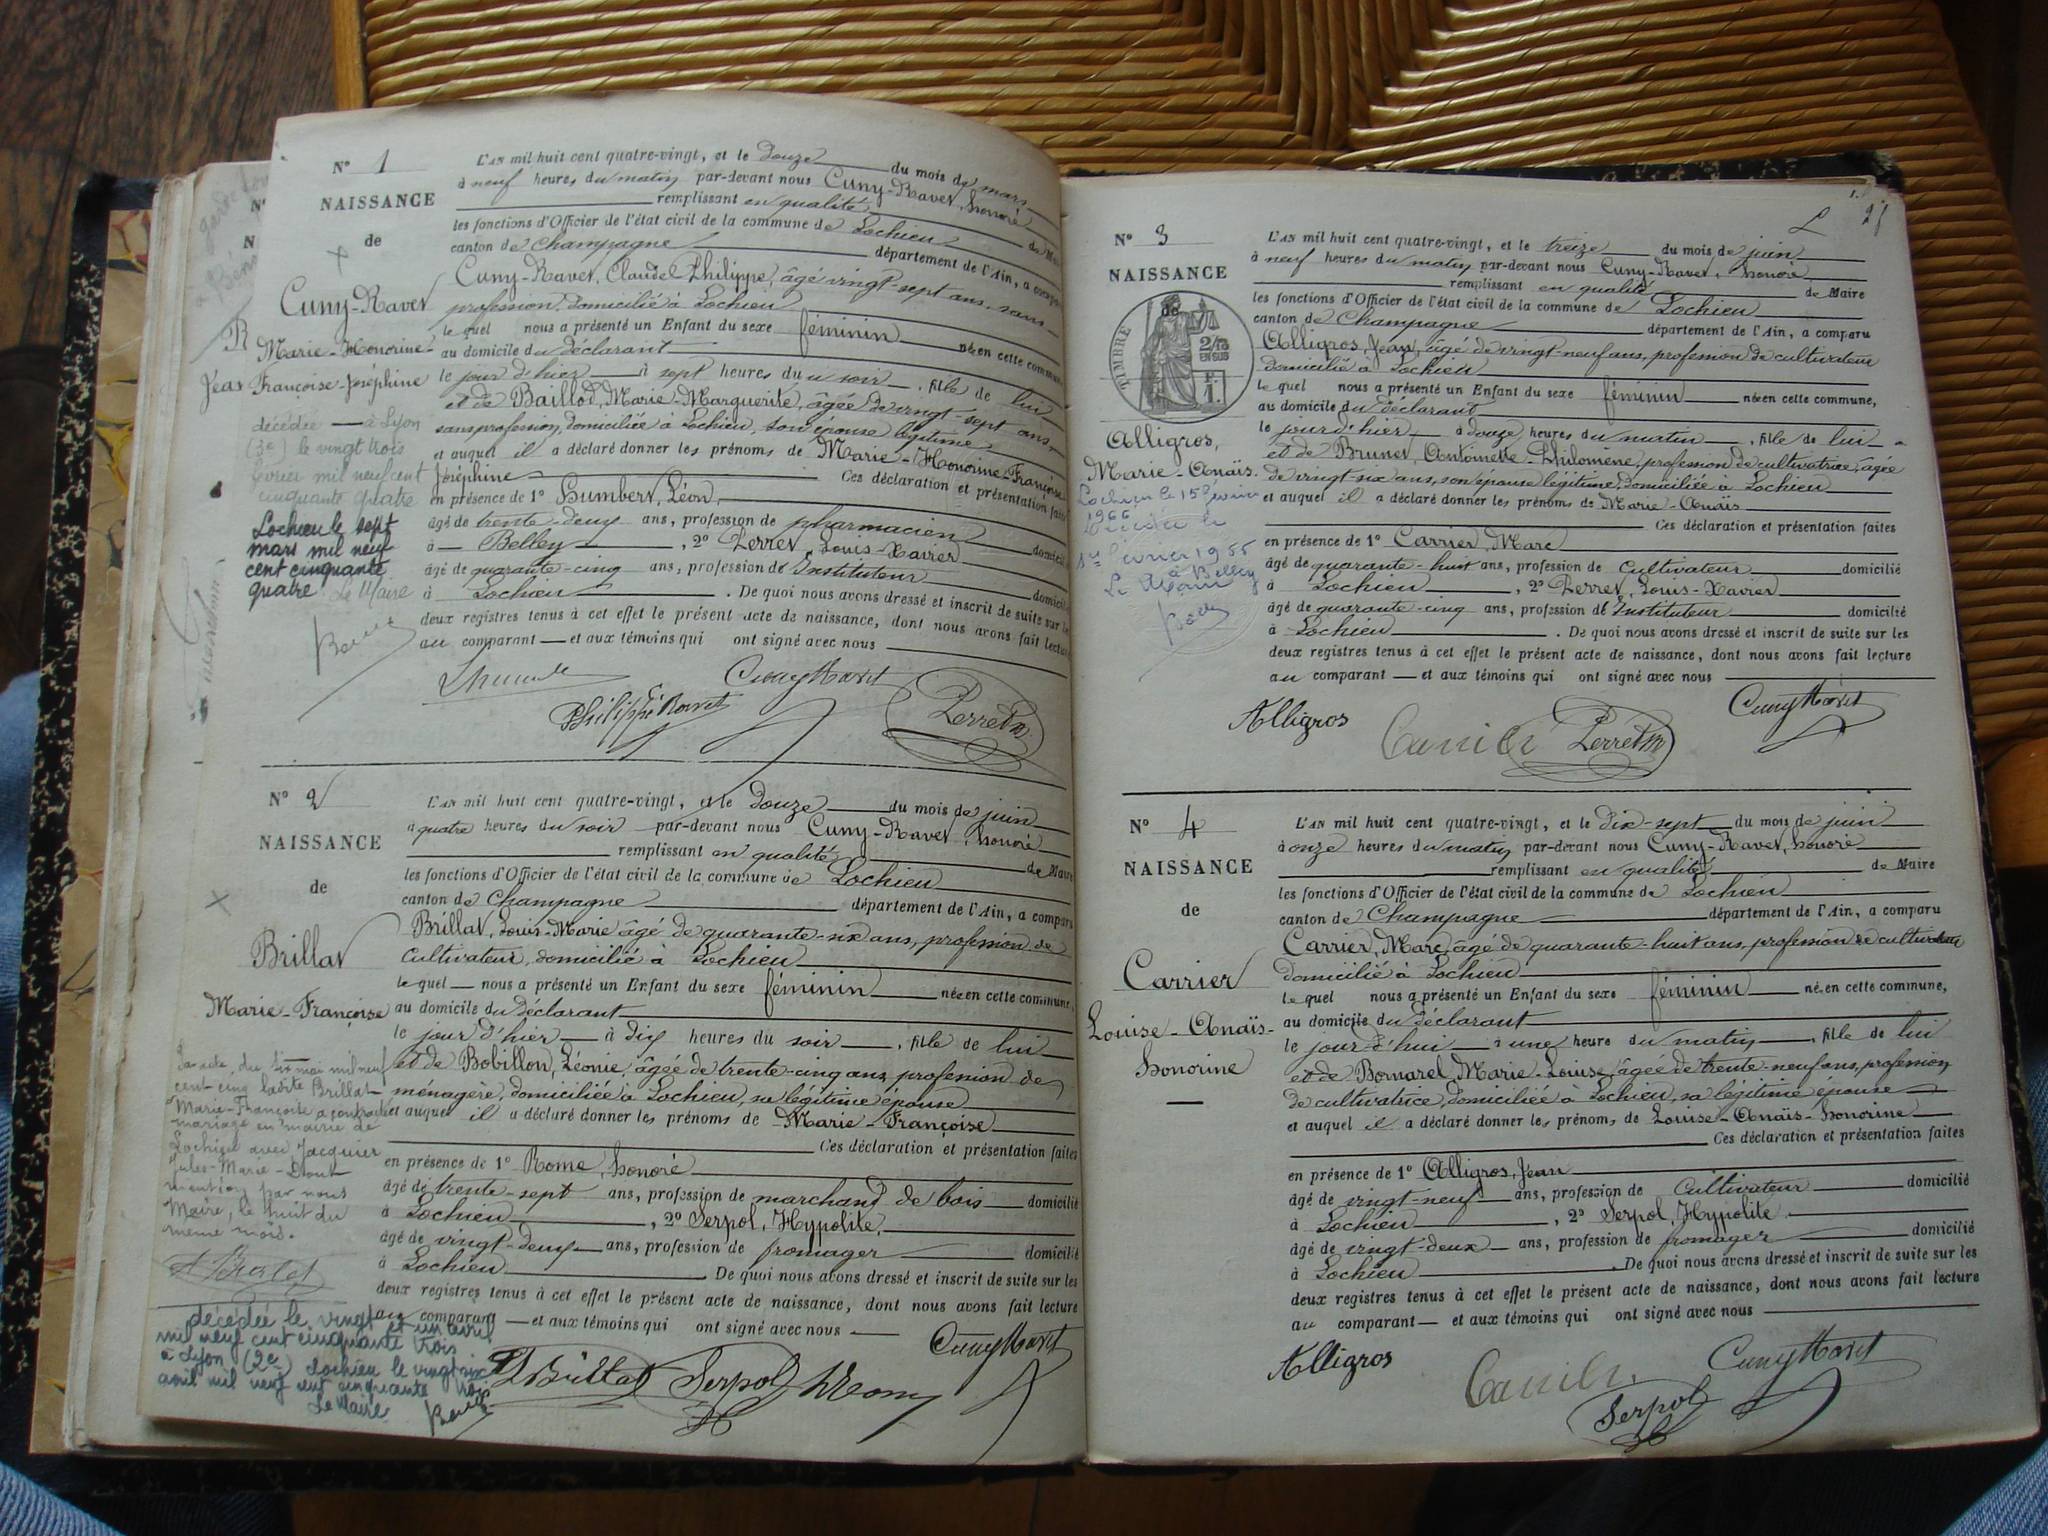 N° 1
NAISSANCE
de
Cuny-Ravet
Marie-Honorine-
Françoise-Joséphine
décédée — à Lyon
(3e) le vingt trois
février mil neuf cent
cinquante quatre
Lochieu le sept
mars mil neuf
cent cinquante
quatre Le Maire
L'AN mil huit cent quatre-vingt, et le douze du mois de mars
à neuf heures du matin par-devant nous Cuny-Ravet, honoré
remplissant en qualité de Maire
les fonctions d'Officier de l'état civil de la commune de Lochieu
canton de Champagne département de l'Ain, a comparu
Cuny-Ravet, Claude Philippe, âgé vingt-sept ans, sans
profession, domicilié à Lochieu
le quel nous a présenté un Enfant du sexe féminin née en cette commune
au domicile du déclarant
le jour d'hier à sept heures du soir, fille de lui
et de Baillod, Marie-Marguerite, âgée de vingt-sept ans,
sans profession, domiciliée à Lochieu, son épouse légitime
et auquel il a déclaré donner les prénoms de Marie-Honorine-Françoise
Joséphine Ces déclaration et présentation faites
en présence de 1° Humbert, Léon,
âgé de trente-deux ans, profession de pharmacien domicilié
à Belley, 2° Perret, Louis-Xavier
âgé de quarante-cinq ans, profession de Instituteur domicilié
à Lochieu. De quoi nous avons dressé et inscrit de suite sur les
deux registres tenus à cet effet le présent acte de naissance, dont nous avons fait lecture
au comparant — et aux témoins qui ont signé avec nous
CunyRavet
Philippe Ravet
Perret
N° 2
NAISSANCE
de
Brillat
Marie-Françoise
Par acte du six mai mil neuf
cent cinq ladite Brillat
Marie-Françoise a contracté
mariage en mairie de
Lochieu avec Jacquier
Jules-Marie - Dont
mention par nous
Maire, le huit du
même mois.
décédée le vingt et un avril
mil neuf cent cinquante trois
à Lyon (2e) Lochieu le vingt six
avril mil neuf cent cinquante trois
Le Maire
L'AN mil huit cent quatre-vingt, et le douze du mois de juin
à quatre heures du soir par-devant nous Cuny-Ravet, honoré
remplissant en qualité de Maire
les fonctions d'Officier de l'état civil de la commune de Lochieu
canton de Champagne département de l'Ain, a comparu
Brillat, Louis-Marie âgé de quarante-six ans, profession de
cultivateur, domicilié à Lochieu
le quel — nous a présenté un Enfant du sexe féminin née en cette commune,
au domicile du déclarant
le jour d'hier — à dix heures du soir —, fille de lui
et de Bobillon, Léonie, âgée de trente-cinq ans, profession de
ménagère, domiciliée à Lochieu, sa légitime épouse
et auquel il a déclaré donner les prénoms de Marie-Françoise
Ces déclaration et présentation faites
en présence de 1° Rome, honoré
âgé de trente-sept ans, profession de marchand de bois domicilié
à Lochieu, 2° Serpol, Hypolite,
âgé de vingt-deux ans, profession de fromager domicilié
à Lochieu De quoi nous avons dressé et inscrit de suite sur les
deux registres tenus à cet effet le présent acte de naissance, dont nous avons fait lecture
au comparant — et aux témoins qui ont signé avec nous —
CunyRavet
LBrillat Serpol hRome
N° 3
NAISSANCE
de
TIMBRE
2/10
EN SUS
Alligros,
Marie-Anaïs.
L'AN mil huit cent quatre-vingt, et le treize du mois de juin
à neuf heures du matin par-devant nous Cuny-Ravet, honoré
remplissant en qualité de Maire
les fonctions d'Officier de l'état civil de la commune de Lochieu
canton de Champagne département de l'Ain, a comparu
Alligros, Jean, âgé de vingt-neuf ans, profession de cultivateur
domicilié à Lochieu
le quel nous a présenté un Enfant du sexe féminin née en cette commune,
au domicile du déclarant
le jour d'hier à douze heures du matin, fille de lui
et de Brunet, Antoinette-Philomène, profession de cultivatrice, âgée
de vingt-six ans, son épouse légitime, domiciliée à Lochieu
et auquel il a déclaré donner les prénoms de Marie-Anaïs
Ces déclaration et présentation faites
en présence de 1° Carrier, Marc
âgé de quarante-huit ans, profession de Cultivateur domicilié
à Lochieu, 2° Perret, Louis-Xavier
âgé de quarante-cinq ans, profession de Instituteur domicilié
à Lochieu. De quoi nous avons dressé et inscrit de suite sur les
deux registres tenus à cet effet le présent acte de naissance, dont nous avons fait lecture
au comparant — et aux témoins qui ont signé avec nous
CunyRavet
Alligros
Carrier Perret
N° 4
NAISSANCE
de
Carrier
Louise-Anaïs-
honorine
L'AN mil huit cent quatre-vingt, et le dix-sept du mois de juin
à onze heures du matin par-devant nous Cuny-Ravet, honoré
remplissant en qualité de Maire
les fonctions d'Officier de l'état civil de la commune de Lochieu
canton de Champagne département de l'Ain, a comparu
Carrier, Marc, âgé de quarante-huit ans, profession de cultivateur
domicilié à Lochieu
le quel nous a présenté un Enfant du sexe féminin née en cette commune,
au domicile du déclarant
le jour d'hui à une heure du matin, fille de lui
et de Bornarel, Marie-Louise, âgée de trente-neuf ans, profession
de cultivatrice, domiciliée à Lochieu, sa légitime épouse
et auquel il a déclaré donner les prénoms de Louise-Anaïs-honorine
Ces déclaration et présentation faites
en présence de 1° Alligros, Jean
âgé de vingt-neuf ans, profession de Cultivateur domicilié
à Lochieu, 2° Serpol, Hypolite
âgé de vingt-deux ans, profession de fromager domicilié
à Lochieu. De quoi nous avons dressé et inscrit de suite sur les
deux registres tenus à cet effet le présent acte de naissance, dont nous avons fait lecture
au comparant — et aux témoins qui ont signé avec nous
Alligros Carrier CunyRavet
Serpol